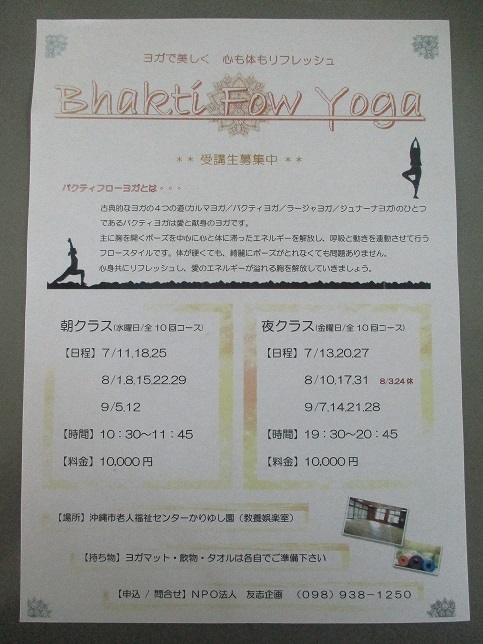 ヨガで美しく 心も体もリフレッシュ
Bhakti Fow Yoga
** 受講生募集中 **
バクティフローヨガとは・・・
古典的なヨガの4つの道(カルマヨガ/バクティヨガ/ラージャヨガ/ジュナーナヨガ)のひとつ
であるバクティヨガは愛と献身のヨガです。
主に胸を開くポーズを中心に心と体に滞ったエネルギーを解放し、呼吸と動きを連動させて行う
フロースタイルです。体が硬くても、綺麗にポーズがとれなくても問題ありません。
心身共にリフレッシュし、愛のエネルギーが溢れる胸を解放していきましょう。
朝クラス(水曜日/全10回コース)
【日程】7/11,18,25
8/1.8.15,22.29
9/5.12
【時間】10:30～11:45
【料金】10,000円
夜クラス(金曜日/全10回コース)
【日程】7/13,20,27
8/10,17.31 8/3.24休
9/7.14,21.28
【時間】19:30～20:45
【料金】10,000円
【場所】沖縄市老人福祉センターかりゆし園(教養娯楽室)
【持ち物】ヨガマット・飲物・タオルは各自でご準備下さい
【申込/問合せ】NPO法人 友志企画 (098)938-1250